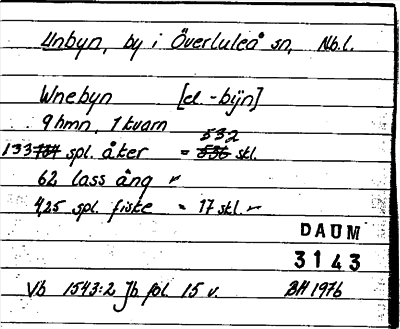 Unbyn, by i Överluleå sn, Nb.l.
Wnebyn [el. -bÿn]
9 hmn, 1 kvarn
532
133 734 spl. åker = 536 skl.
62 lass äng
4,25 spl. fiske = 17 skl.
DAUM
3143
Vb 1543:2 Jb fol. 15 v. BH 1976